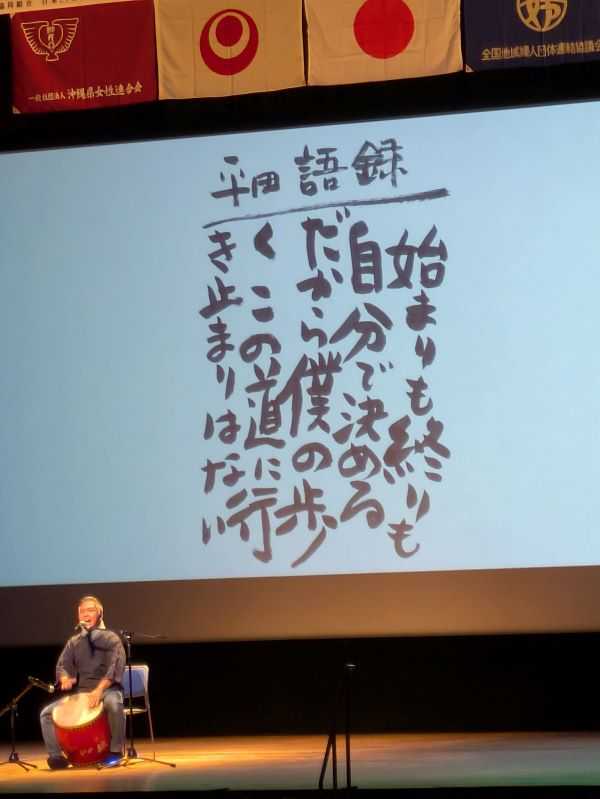 一般社団法人 沖縄県女性連合会
全国地域婦人団体連絡協議会
平田語録
始まりも終りも
自分で決める
だから僕の歩
く この道に行
き止まりはない